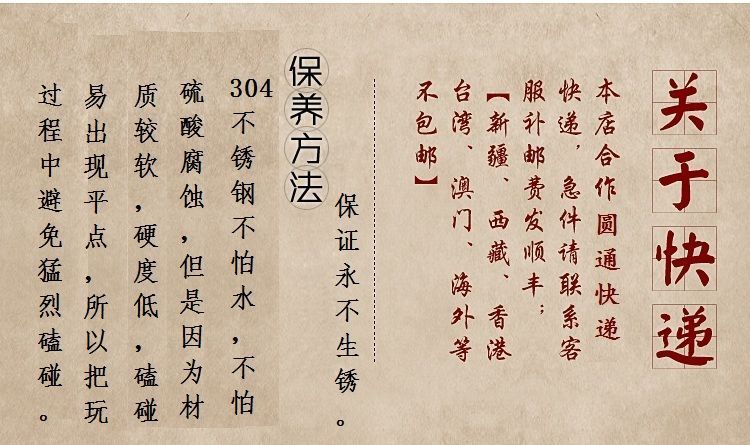 关于快递
本店合作圆通快递
快递，急件请联系客
服补邮费发顺丰；
【新疆、西藏、香港
台湾、澳门、海外等
不包邮】
保证永不生锈。
保养方法
304不锈钢不怕水，不怕
硫酸腐蚀，但是因为材
质较软，硬度低，磕碰
易出现平点，所以把玩
过程中避免猛烈磕碰。